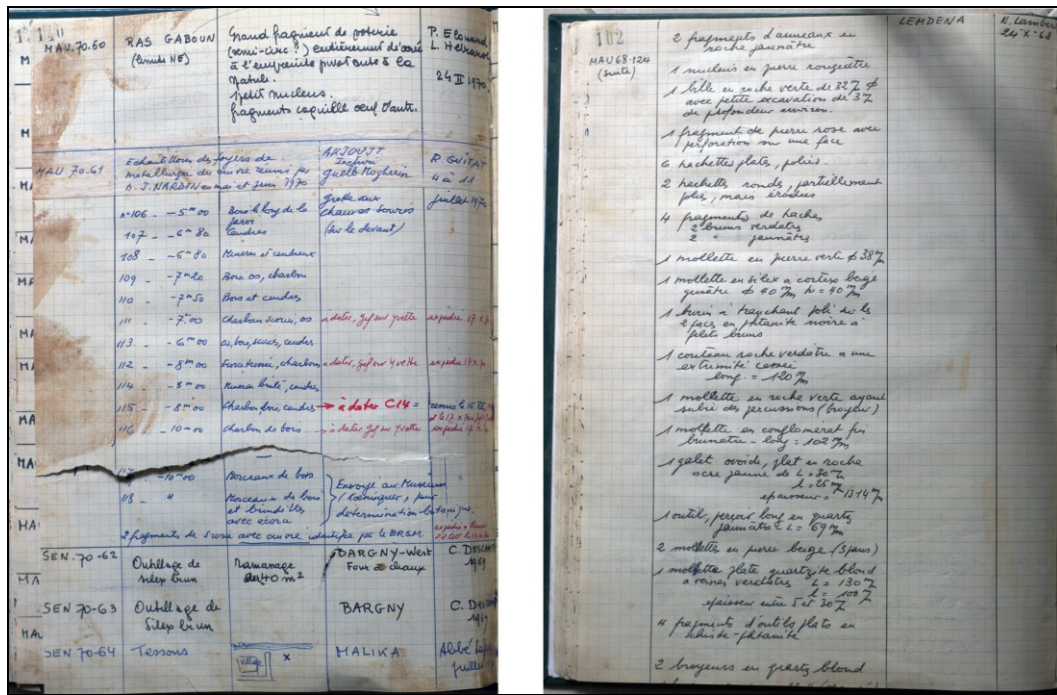 140
MAU.70.60
RAS GABOUN
(limite NE)
Grand fragment de poterie
(semi-circ?) entièrement décoré
à l'empreinte pivotante à la
spatule.
petit nucleus.
fragments coquille œuf d'autr.
24 II 1970
MAU 70.61
Echantillons des foyers de
métallurgie du cuivre remis par
N. J. NARDIN en mai et juin 1970
AKJOUJT
Inchiri
guelb Moghrein
grotte aux
chauves souris
(sur le devant)
R. GUITAT
4 à 11
juillet 1970
n°106 - -5m00 Bois le long de la paroi
107 - -6m80 Cendres
108 - -6m80 Minerai et cendreux
109 -7m20 Bois os, charbon
110 -7m50 Bois et cendres
111 -7m00 Charbon scories, os à dater, Gif sur Yvette expédié 17 X 70
113 -6m00 os, bois, scories, cendres
112 -8m00 charbon à dater, Gif sur Yvette expédié 17 X 70
114 -8m00 Minerai brulé, cendres
115 -8m00 Charbon, cendres → à dater C14 =
116 -10m00 charbon de bois à dater Gif sur Yvette expédié 17 X 70
117 -10m00 Morceaux de bois
118 - " Morceaux de bois
et brindilles
avec ecorce
Envoyé au Museum
(Koeninguer) pour
determination botanique.
2 fragments de scorie avec cuivre identifiée par le BRGM.
SEN.70-62
Outillage de
silex brun
Ramassage
sur 40 m²
BARGNY-West
Four à chaux
C. DESCAMPS
1969
SEN 70-63
Outillage de
Silex brun
BARGNY
C. Descamps
1969
SEN 70-64
Tessons
village
x
MALIKA
Abbé
juillet
102
LEMDENA
N. Lambert
24-X-68
MAU 68-124
(suite)
2 fragments d'anneaux en
roche jaunâtre
1 nucleus en pierre rougeâtre
1 bille en roche verte de 32 m/m ϕ
avec petite excavation de 3 m/m
de profondeur environ.
1 fragment de pierre rose avec
perforation sur une face
6 hachettes plates, polies.
2 hachettes rondes, partiellement
polies, mais érodées
4 fragments de haches
2 bruns verdatres
2 " jaunâtres
1 mollette en pierre verte ϕ 38 m/m
1 mollette en silex à cortex beige
grisâtre ϕ 40 m/m h = 40 m/m
1 burin à tranchant poli sur les
2 faces en phtanite noire à
filets bruns
1 couteau roche verdâtre a une
extremité cassée
long. = 120 m/m
1 mollette en roche verte ayant
subie des percussions (broyeur)
1 mollette en conglomerat fin
brunatre - long = 102 m/m
1 galet ovoïde, plat en roche
ocre jaune de L = 30 m/m
l = 25 m/m
epaisseur = 13 14 m/m
1 outil, perçoir long en quartz
jaunâtre L = 69 m/m
2 mollettes en pierre beige (3 pans)
1 mollette plate quartzite blond
à veines verdatres L = 130 m/m
l = 100 m/m
epaisseur entre 5 et 30 m/m
4 fragments d'outils plats en
schiste-phtanite
2 broyeurs en quartz blond